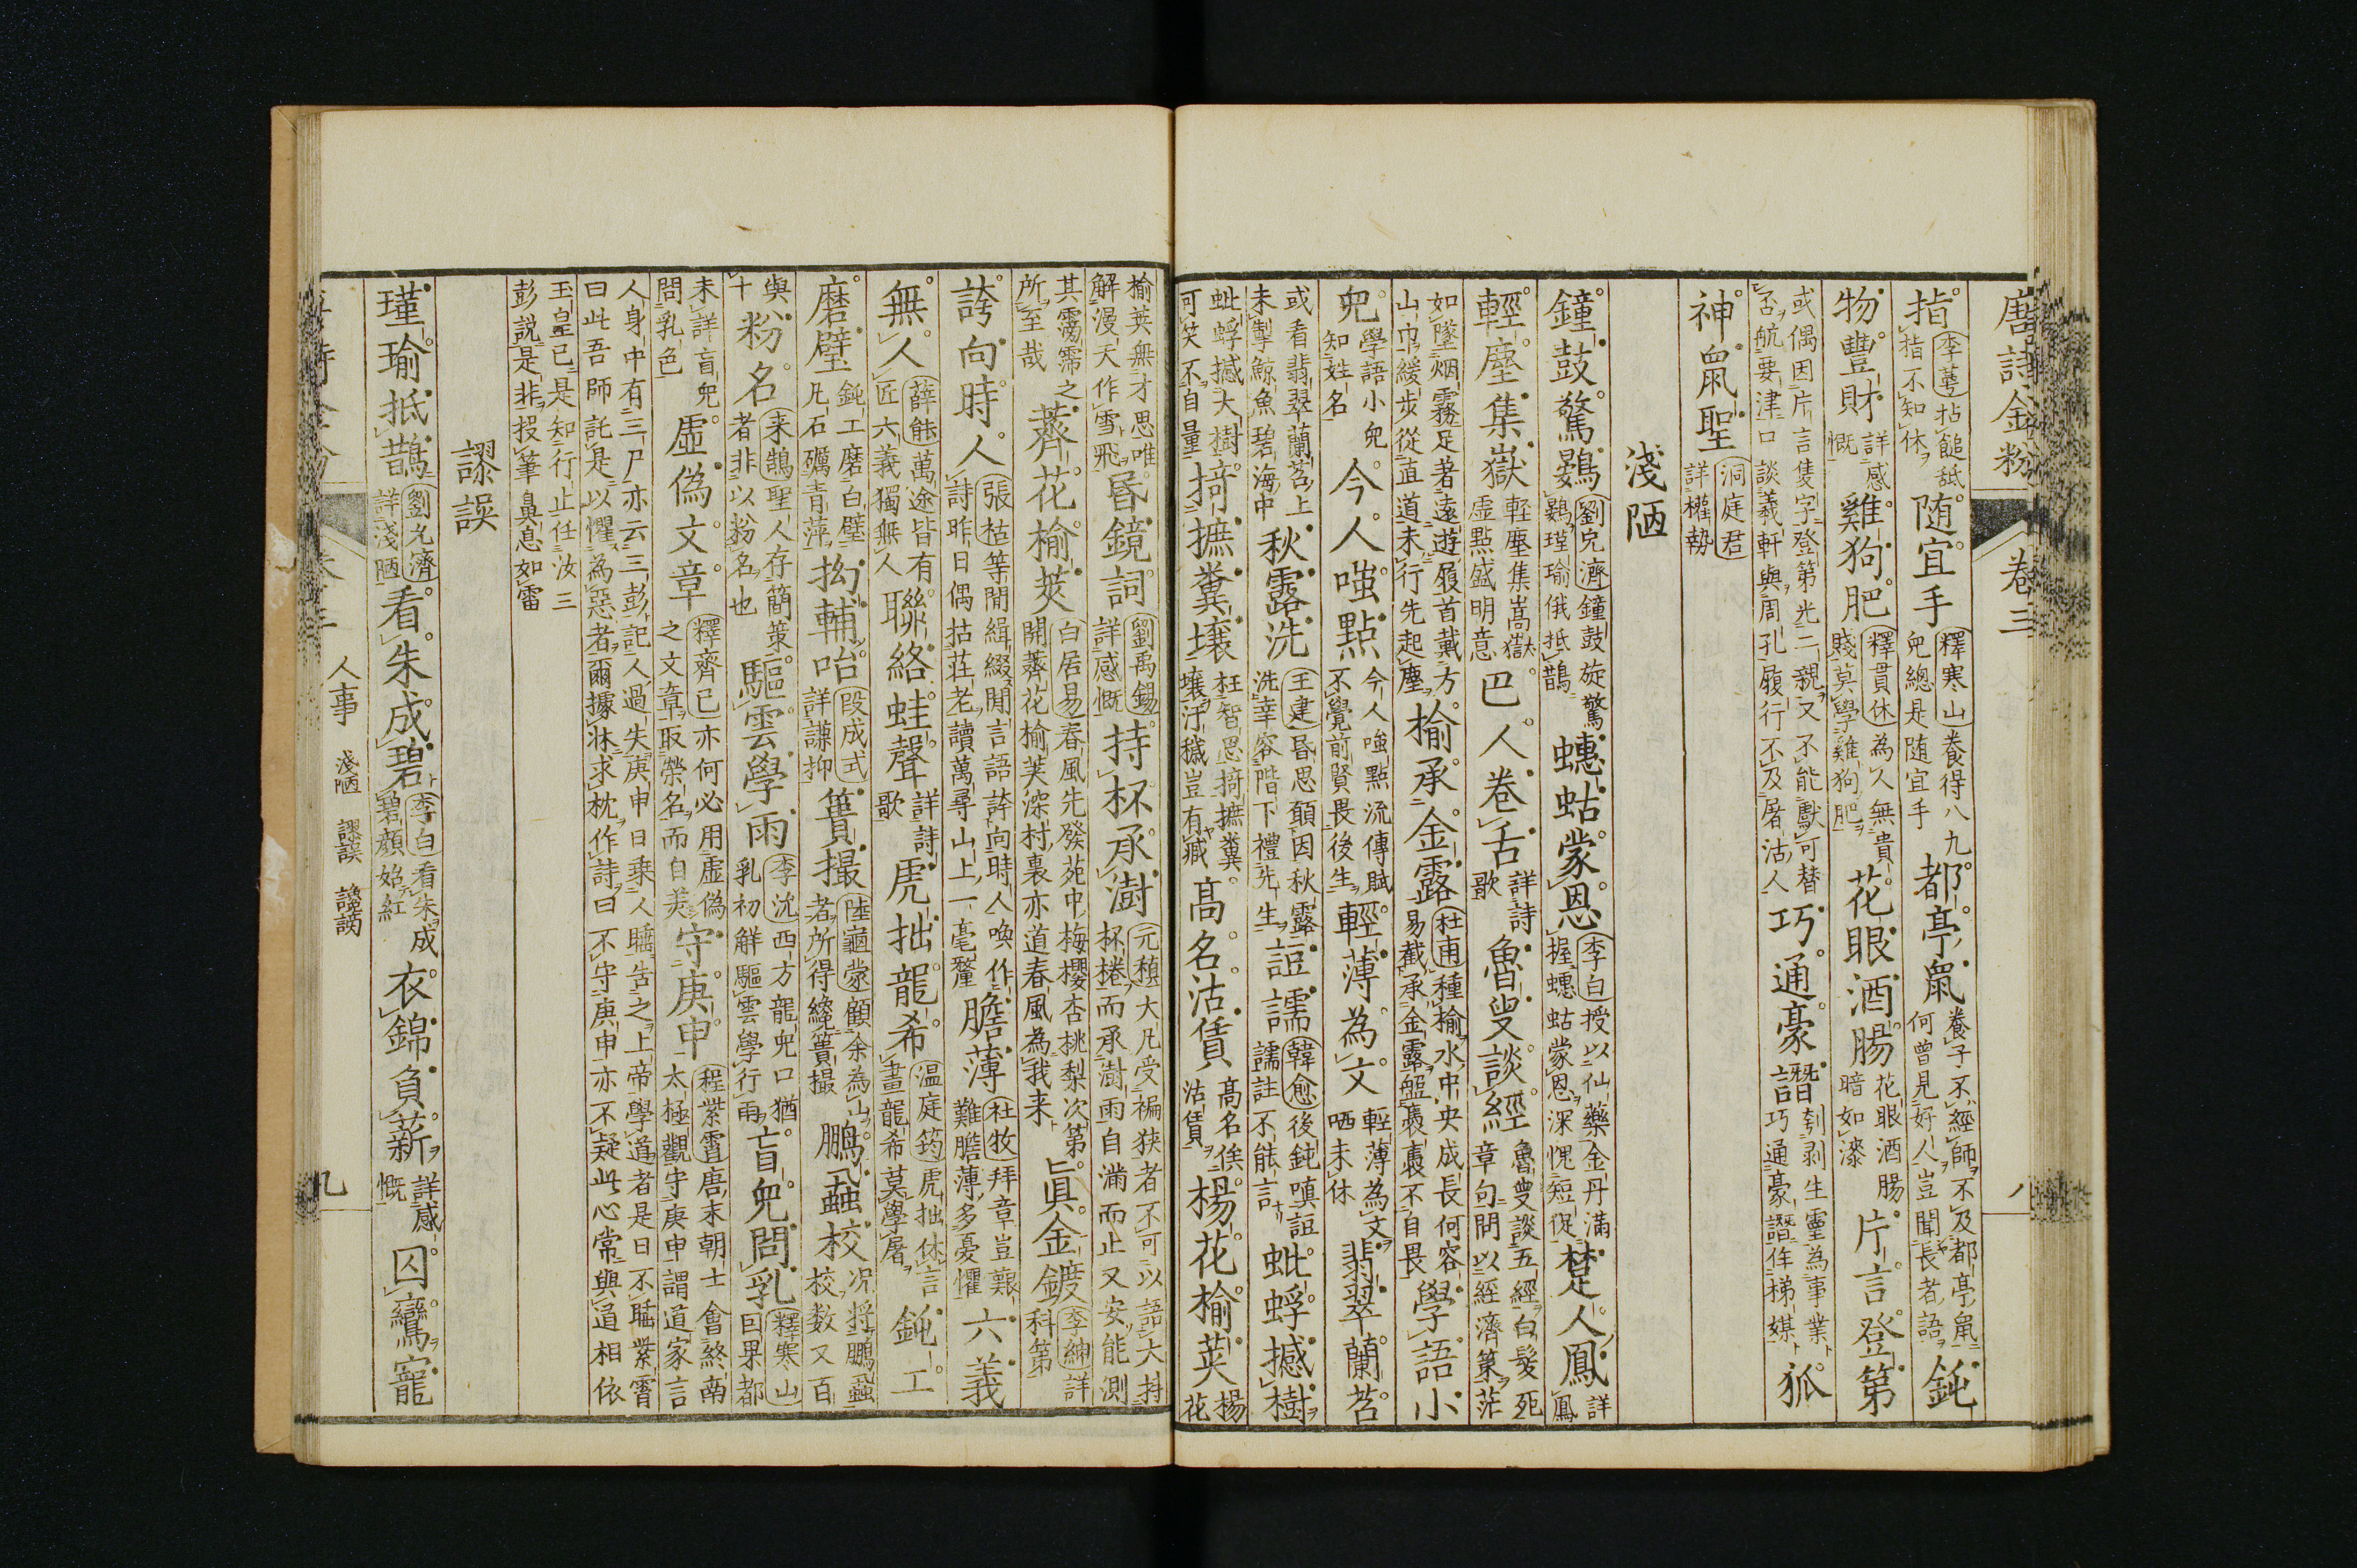 唐詩金粉 卷三 八
指李蕚拈䭔舐指不知休随宜手釋寒山養得八九兒總是随宜手都亭鼠養子不經師不及都亭鼠何曾見好人豈聞長者語鈍
物豐財詳感慨雞狗肥釋貫休為久無貴賤莫學雞狗肥花眼酒腸花眼酒腸暗如漆片言登第
或偶因片言隻字登第光二親又不能獻可替否航要津口談義軒與周孔履行不及屠沽人巧通豪譖刳剥生靈為事業巧通豪譖侔梯媒狐
神鼠聖洞庭君詳權勢
淺陋
鐘鼓驚鷃劉允濟鐘鼓旋驚鷃瑾瑜俄抵鵲蟪蛄蒙恩李白授以仙藥金丹滿握蟪蛄蒙恩深愧短促楚人鳳詳鳳
輕塵集嶽輕塵集嵩嶽虚點盛明意巴人卷舌詳詩歌魯叟談經魯叟談五經白髮死章句問以經濟策茫
如墜烟霧足著遠遊履首戴方山巾緩步從直道未行先起塵榆承金露杜甫種榆水中央成長何容易截承金露盤裊裊不自畏學語小
兒學語小兒知姓名今人嗤點今人嗤點流傳賦不覺前賢畏後生輕薄為文輕薄為文哂未休翡翠蘭苕
或看翡翠蘭苕上未掣鯨魚碧海中秋露洗王建昏思顛因秋露洗幸容階下禮先生詎譳韓愈後鈍嗔詎譳註不能言蚍蜉撼樹
蚍蜉撼大樹可笑不自量掎摭糞壤枉智思掎摭糞壤汙穢豈有臧高名沽賃高名俟沽賃楊花榆莢楊花
榆莢無才思唯解漫天作雪飛昏鏡詞劉禹錫詳感慨持杯承澍元稹大凡受褊狹者不可以語大持杯棬而承澍雨自滿而止又安能測
其霶霈之所至哉薺花榆莢白居易春風先發苑中梅櫻杏桃梨次第開薺花榆莢深村裏亦道春風為我来真金鍍李紳詳科第
誇向時人張祜等閒緝綴閒言語誇向時人喚作詩昨日偶拈莊老讀萬尋山上一毫釐膽薄杜牧拜章豈艱難膽薄多憂懼六義
無人薛能萬途皆有匠六義獨無人聯絡蛙聲詳詩歌虎拙龍希温庭筠虎拙休言畫龍希莫學屠鈍工
磨璧鈍工磨白璧凡石礪青萍拗輔咍段成式詳謙抑簣撮陸龜蒙顧余為山者所得纔簣撮鵬蝨校况将鵬蝨校数又百
與十粉名来鵠聖人存簡策者非以粉名名也驅雲學雨李沈西方龍兒口猶乳初解驅雲學行雨盲兒問乳釋寒山回果都
未詳盲兒問乳色虚偽文章釋齊已亦何必用虚偽之文章取榮名而自美守庚申程紫霄唐末朝士會終南太極觀守庚申謂道家言
人身中有三尸亦云三彭記人過失庚申日乗人睡告之上帝學道者是日不睡紫霄曰此吾師託是以懼為惡者爾據牀求枕作詩曰不守庚申亦不疑此心常與道相依
玉皇已是知行止任汝三彭説是非投筆鼻息如雷
謬誤
瑾瑜抵鵲劉允濟詳淺陋看朱成碧李白看朱成碧顔始紅衣錦負薪詳感慨囚鸞寵
人事 淺陋 謬誤 讒謗 九